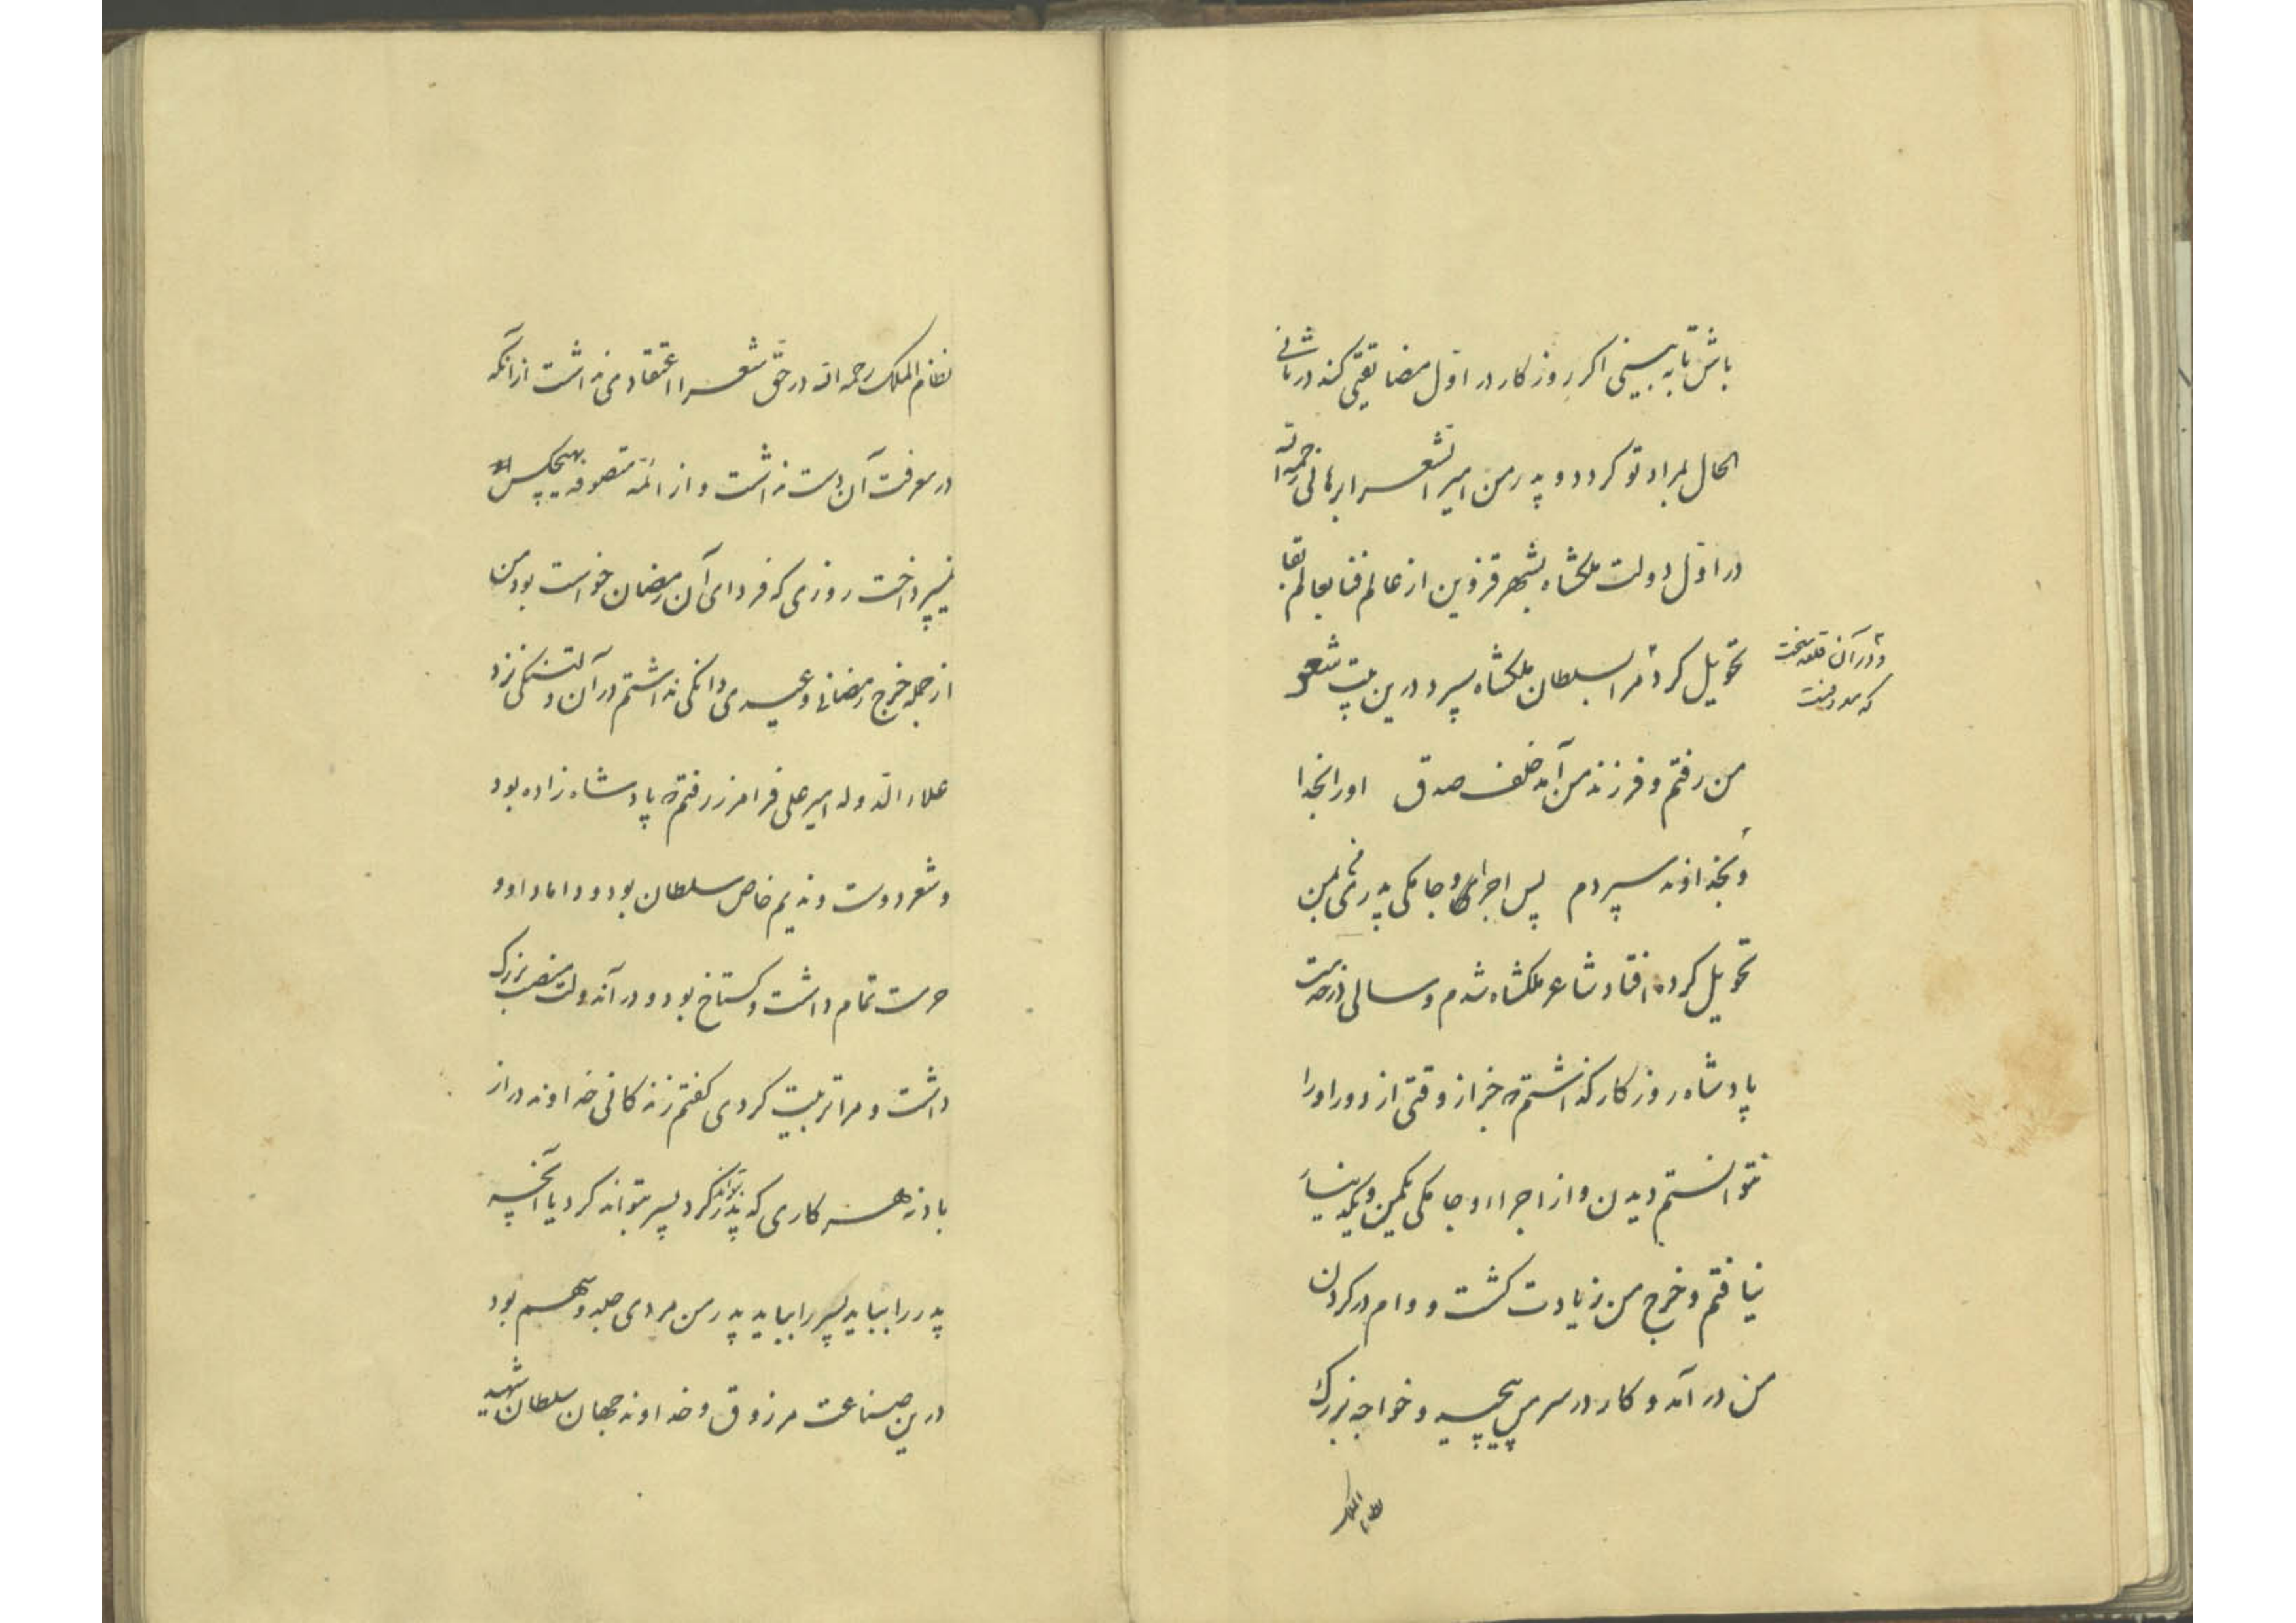 باش تا به بینی اکر روزکار در اول مضایقتی کند در ثانی
الحال بمراد تو کردد و پدر من امیر الشعرا برهانی رحمه الله
در اول دولت ملکشاه بشهر قزوین از عالم فنا بعالم بقا
تحویل کرد و در آن قطعه سخت که معروفست مرا بسلطان ملکشاه سپرد درین بیت شعر
من رفتم و فرزند من آمد خلف صدق اورا بخدا
و بخداوند سپردم پس اجرای و جامکی پدر من بمن
تحویل کرده افتاد شاعر ملکشاه شدم و سالی در خدمت
پادشاه روزکار کذاشتم که جز از وقتی از دور اورا
نتوانستم دیدن و از اجراء و جامکی یکمن و یکدینار
نیافتم و خرج من زیادت کشت و وام در کردن
من در آمد و کار در سر من پیچید و خواجه بزرک
نظام الملک
نظام الملک رحمه الله در حق شعرا اعتقادی نداشت از آنکه
در معرفت آن دست نداشت و از ائمه متصوفه بهیچکس
نمیپرداخت روزی که فردای آن رمضان خواست بود من
از جمله خرج رمضانی و عیدی دانکی نداشتم در آن دلتنکی نزد
علاء الدوله امیر علی فرامرز رفتم که پادشاه زاده بود
و شعر دوست و ندیم خاص سلطان بود و داماد او و
حرمت تمام داشت و کستاخ بود و در آندولت منصب بزرک
داشت و مرا تربیت کردی کفتم زندکانی خداوند دراز
باد نه هر کاری که پدر تواند کرد پسر بتواند کرد یا آنچه
پدر را بیاید پسر را بیاید پدر من مردی جلد و سهم بود
درین صناعت مرزوق و خداوند جهان سلطان شهید